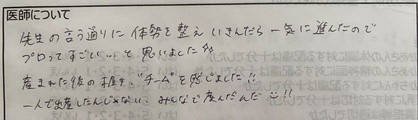 医師について
先生の言う通りに体勢を整えいきんだら一気に進んだので
プロってすごい…と思いました!!
産まれた後の握手、"チーム"を感じました!!
一人で出産したんじゃない、みんなで産んだんだ!!